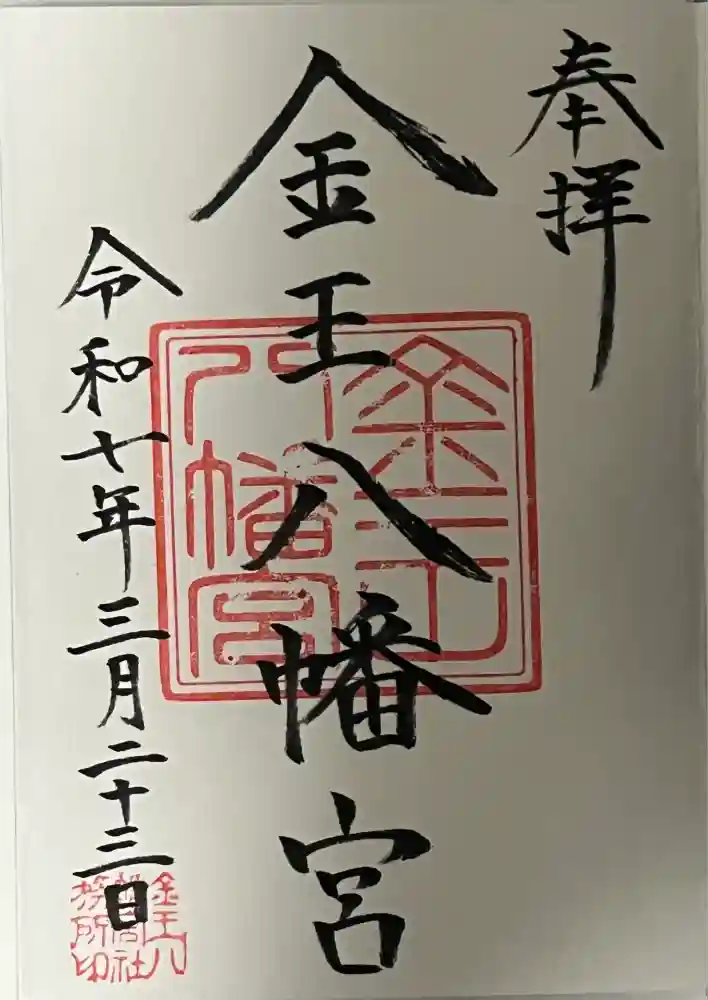 奉拝
金王八幡宮
金王八幡宮
令和七年三月二十三日
金王八幡宮社務所印